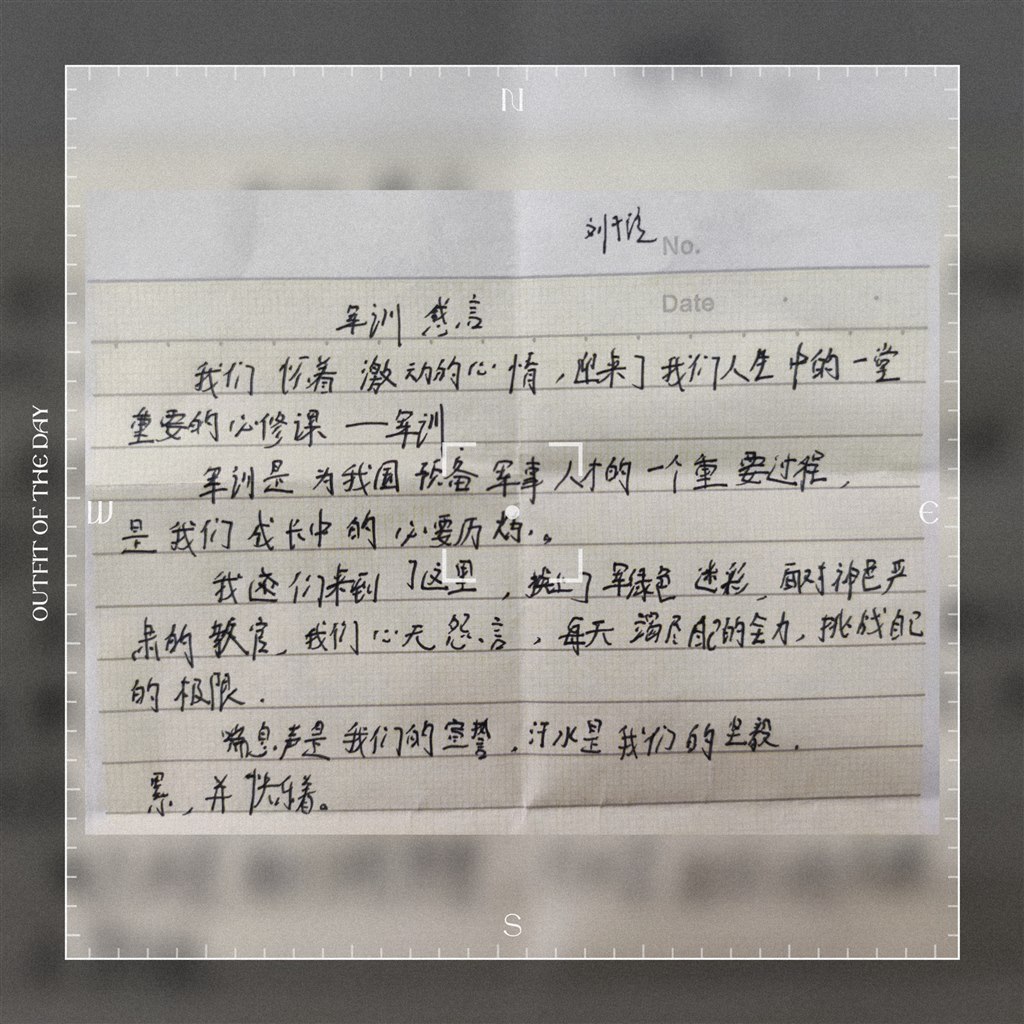 N
刘
No.
Date
军训 感言
我们 怀着 激动的心情，迎来了我们人生中的一堂
重要的必修课 —军训
军训是为我国预备军事人才的一个重要过程，
W
E
是我们成长中的必要历
我 们来到了这里， 了军绿色迷彩，面对神色严
肃的教官，我们心无怨言，每天竭尽自己的全力，挑战自己
的极限．
喘息声是我们的宣誓，汗水是我们的坚毅．
累，并快乐着。
S
OUTFIT OF THE DAY